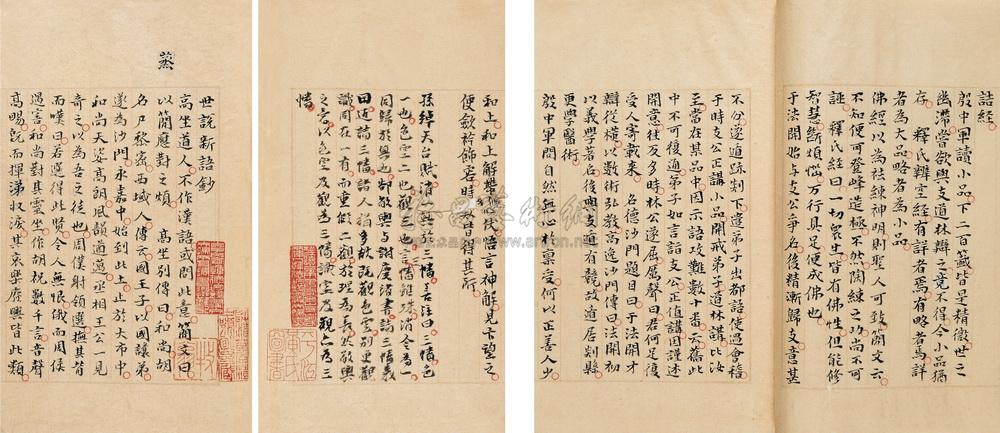 蒸
世說新語鈔
高坐道人不作漢語或問此意簡文曰
以簡應對之煩 高坐別傳曰和尚胡
名尸黎密西域人傳云國王子以國讓弟
遂為沙門永嘉中始到此土止於大市中
和尚天姿高朗風韻遒邁丞相王公一見
奇之以為吾之徒也周僕射領選撫其背
而嘆曰若選得此賢令人無恨俄而周侯
遇害和尚對其靈坐作胡祝數千言音聲
高暢既而揮涕收淚其哀樂廢興皆此類
和上和上解伏悟言神解見卞望之
便斂衿飾容時歎皆得其所
孫綽天台賦消一無於三幡善注曰三幡色
一也色空二也觀三也言三幡雖殊消令為一
同歸於無也郗敬輿與謝慶緒書論三幡義
曰近論三幡諸人猶多欲既觀色空別更觀
識同在一有而重假二觀於理為長然敬輿
之意以色空及觀為三幡識空及觀亦為三
幡
詰經
殷中軍讀小品下二百籤皆是精微世之
幽滯嘗欲與支道林辯之竟不得今小品猶
存 釋氏辨空經有詳者焉有略者焉詳
者為大品略者為小品
佛經以為祛練神明則聖人可致簡文云
不知便可登峰造極不然陶練之功尚不可
誣 釋氏經曰一切眾生皆有佛性但能修
智慧斷煩惱万行具足便成佛也
于法開始與支公爭名後精漸歸支意甚
不分遂遁跡剡下遣弟子出都語使過會稽
于時支公正講小品開戒弟子道林講比汝
至當在某品中因示語攻難數十番云舊此
中不可復通弟子如言詣支公正值講因謹述
開意往反多時林公遂屈厲聲曰君何足復
受人寄載來 名德沙門題目曰于法開才
辯從橫以數術弘教高逸沙門傳曰法開初
以義學著名後與支道有競故遁居剡縣
更學醫術
殷中軍問自然無心於稟受何以正善人少